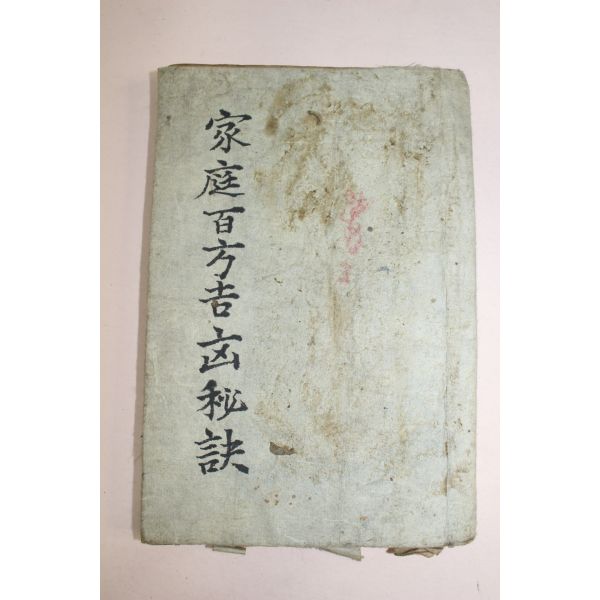 家庭百方吉凶秘訣